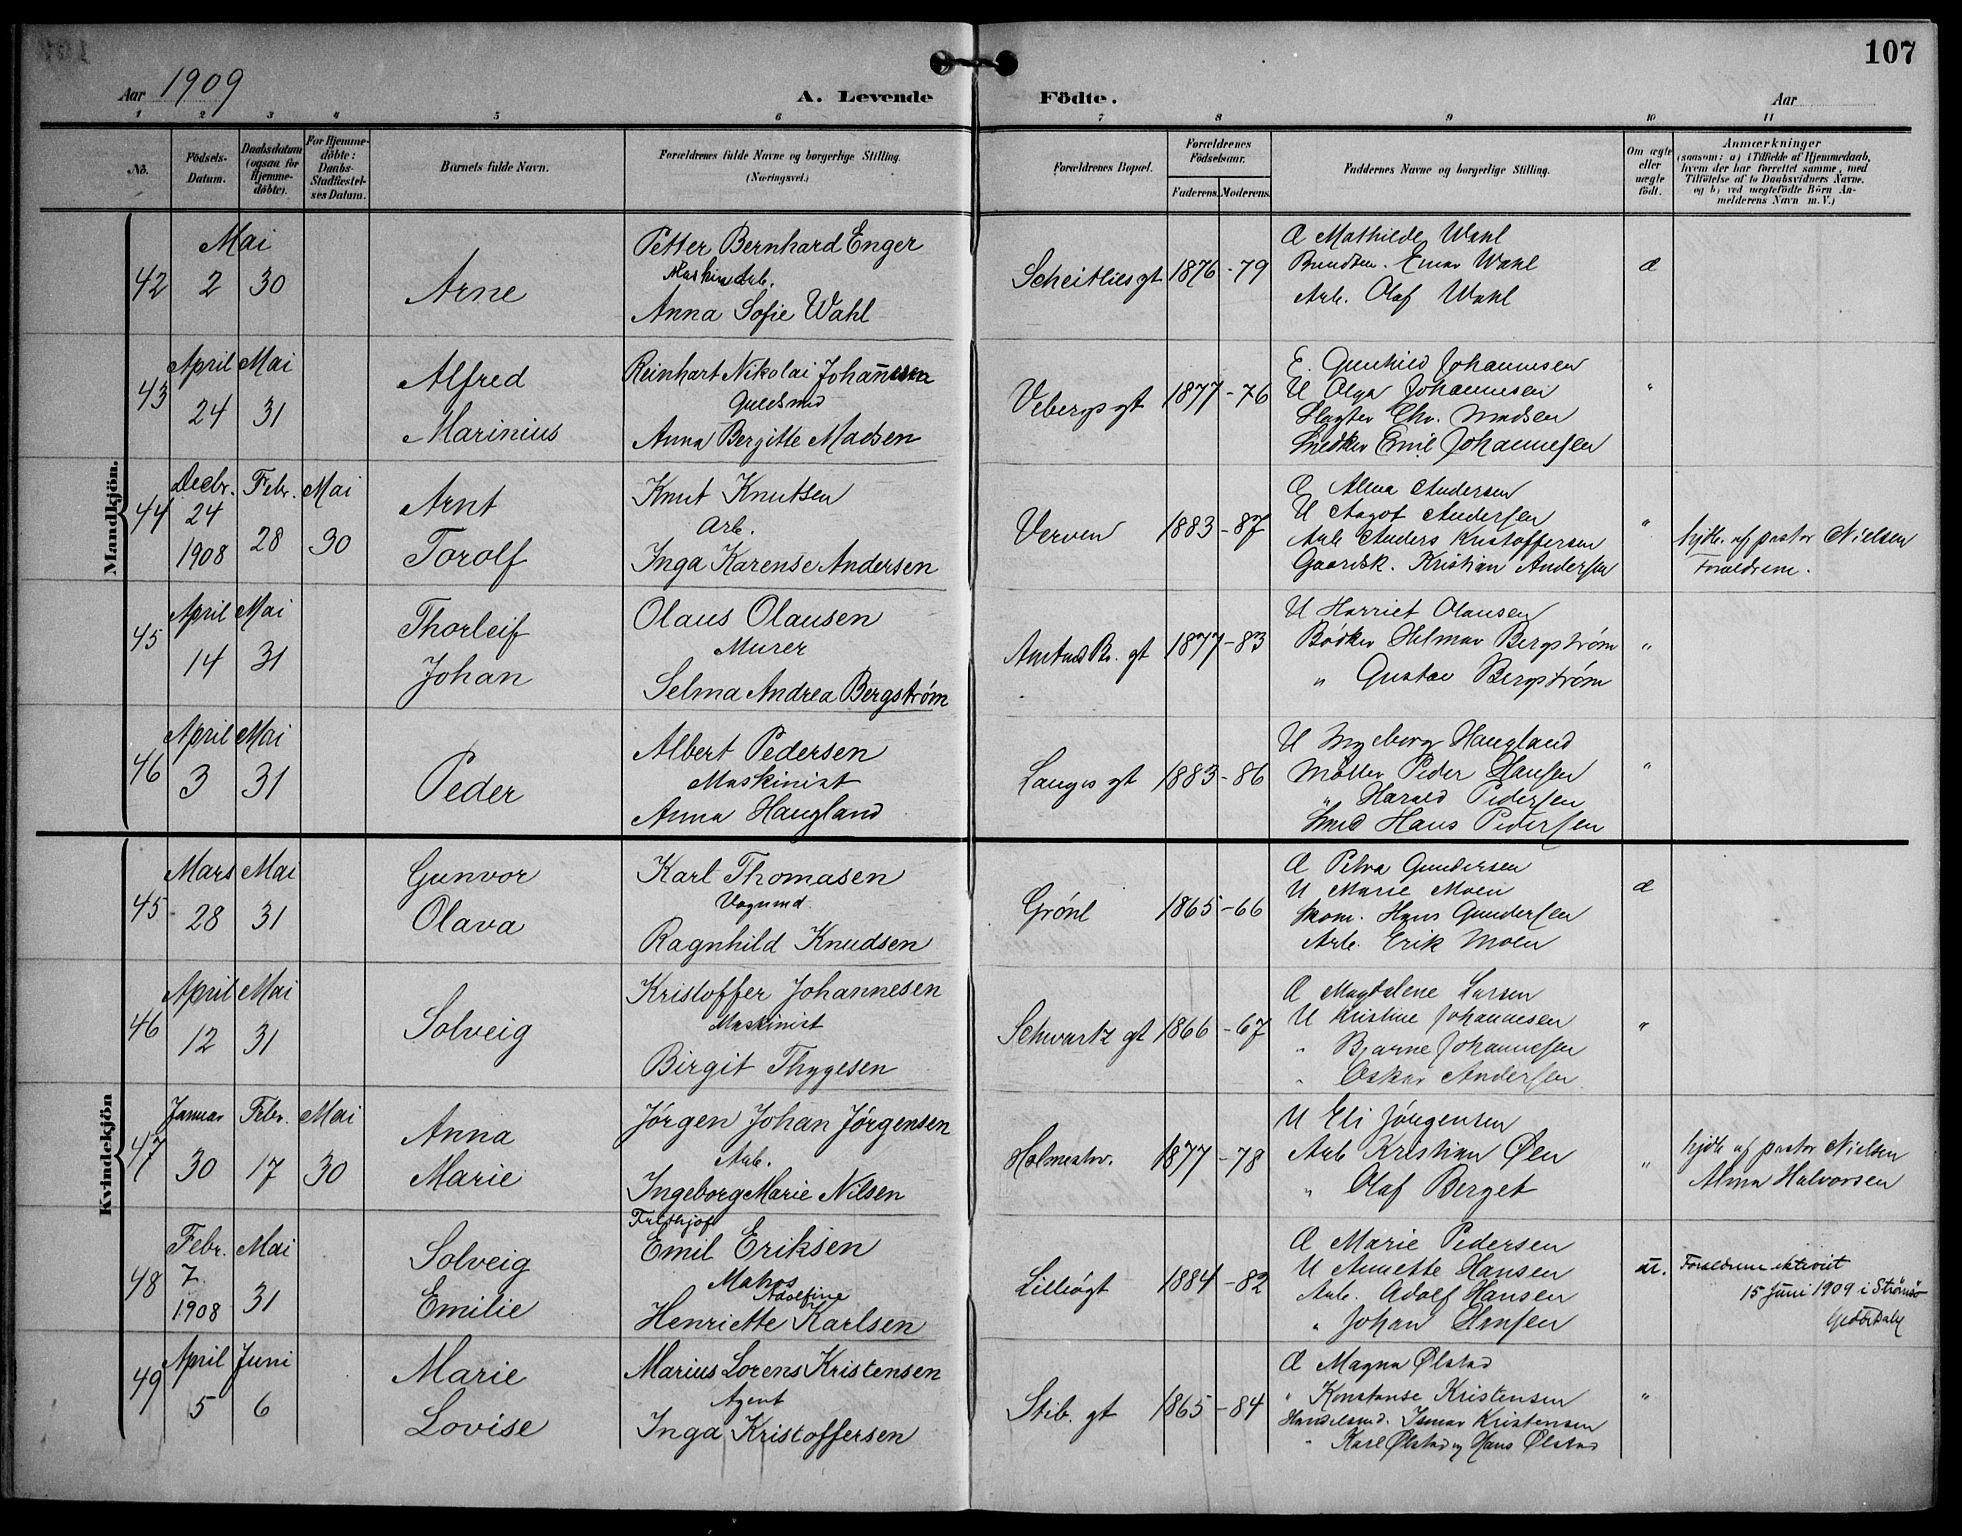 107
Aar 1909
A. Levende
Födte.
Aar
1 2 3 4 5 6 7 8 9 10 11
No.
Födsels-Datum.
Daabsdatum (ogsaa for Hjemmedöbte).
For Hjemmedöbte: Daabs-Stadfæstelses Datum.
Barnets fulde Navn.
Forældrenes fulde Navne og borgerlige Stilling.
(Næringsvei.)
Forældrenes Bopæl.
Forældrenes Födselsaar.
Faderens. Moderens.
Faddernes Navne og borgerlige Stilling.
Om ægte eller uægte födt.
Anmærkninger
(saasom: a) i Tilfælde af Hjemmedaab, hvem der har forrettet samme, med Tilföielse af to Daabsvidners Navne, og b) ved uægtefödte Börn Anmelderens Navn m. V.)
Mandkjön.
42
Mai
2 30
Arne
Petter Bernhard Enger
Maskinarb.
Anna Sofie Wahl
Scheitliesgt 1876 - 79
Æ Mathilde Wahl
Einar Wahl
Arb. Olaf Wahl
æ
43
April Mai
24 31
Alfred
Marinius
Reinhart Nikolai Johannesen
Guldsmed
Anna Bergitte Madsen
Vebergs gt 1877 - 76
E. Gunhild Johannesen
U Olga Johannesen
Slagter Chr. Madsen
Snedker Emil Johannesen
"
44
Decbr. Febr. Mai
24
1908 28 30
Arnt
Torolf
Knut Knutsen
Arb.
Inga Karense Andersen
Verven 1883 - 87
Æ Alma Andersen
U Aagot Andersen
Arb Anders Kristoffersen
Gaardsk. Kristian Andersen
"
hjdb. af pastor Nielsen
Forældrene.
45
April Mai
14 31
Thorleif
Johan
Olaus Olausen
Murer
Selma Andrea Bergstrøm
gt 1877 - 83
U Harriet Olausen
Bødker Hilmar Bergstrøm
" Gustav Bergstrøm
"
46
April Mai
3 31
Peder
Albert Pedersen
Maskinist
Anna Haugland
Langes gt 1883 - 86
U Ingeborg Haugland
Møller Peder Hansen
" Harald Pedersen
Smed Hans Pedersen
"
Kvindekjön
45
Mars Mai
28 31
Gunvor
Olava
Karl Thomasen
Vognmd.
Ragnhild Knudsen
Grønl 1865 - 66
Æ Petra Gundersen
U Marie Moen
Skom. Hans Gundersen
Arb. Erik Moen
æ
46
April Mai
12 31
Solveig
Kristoffer Johannesen
Maskinist
Birgit Thygesen
Schwartz gt 1866 - 67
Æ Magdalene Larsen
U Kristine Johannesen
" Bjarne Johannesen
" Oskar Andersen
"
47
Januar Febr. Mai
30 17 30
Anna
Marie
Jørgen Johan Jørgensen
Arb.
Ingeborg Marie Nilsen
Holmestr. 1877 - 78
U Eli Jörgensen
Arb Kristian Øen
" Olaf Berget
"
hjdb af pastor Nielsen
Alma Halvorsen
48
Febr. Mai
7
1908 31
Solveig
Emilie
Fritshjof
Emil Eriksen
Matros
Adolfine
Henriette Karlsen
Lilleögt 1884 - 82
Æ Marie Pedersen
U Annette Hansen
Arb. Adolf Hansen
" Johan Hansen
Forældrene ekteviet
15 Juni 1909 i Strömsö
49
April Juni
5 6
Marie
Lovise
Marius Lorens Kristensen
Agent
Inga Kristoffersen
Stib. gt 1865 - 84
Æ Magna Ølstad
" Konstanse Kristensen
Handelsmd. Ismar Kristensen
" Karl Ølstad og Hans Ølstad
"